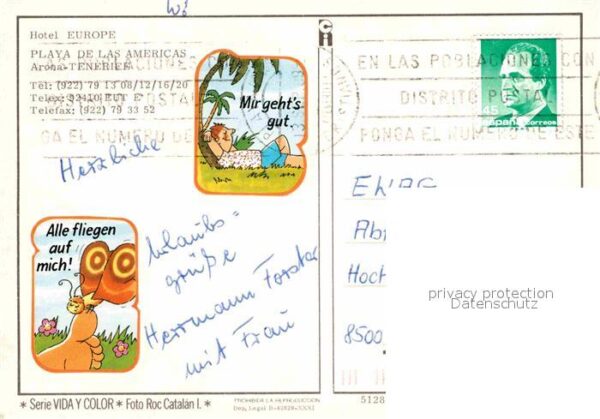 Hotel EUROPE
PLAYA DE LAS AMERICAS
Arona-TENERIFE
Tel: (922) 79 13 08/12/16/20
Telex: 92410 EUT E
Telefax: (922) 79 33 52
Mir geht's
gut.
Alle fliegen
auf
mich!
Herzliche
Urlaubs=
grüße
Herrmann Forster
mit Frau
* Serie VIDA Y COLOR * Foto Roc Catalán I. *
PROHIBIDA LA REPRODUCCION
EN LAS POBLACIONES CON
DISTRITO POSTAL
PONGA EL NUMERO DE ESTE
45
españa correos
Hoch
8500
5128
privacy protection
Datenschutz